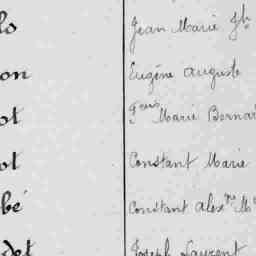 ls Jean Marie Jh
on Eugène Auguste
ot Fçois Marie Bernar
ot Constant Marie
bé Constant Alexre M
det Joseph Laurent